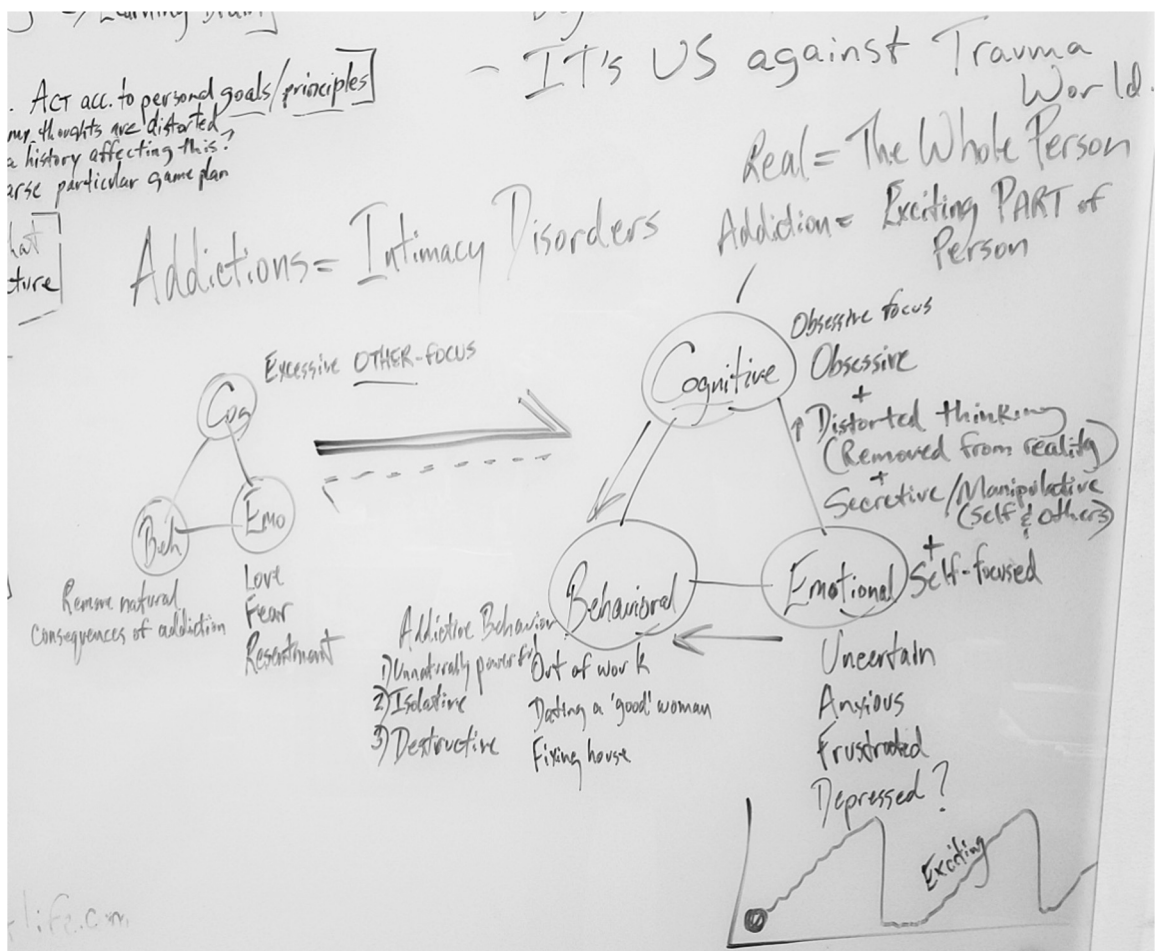 Learning Brain]
- IT'S US against Trauma
World.
. ACT acc. to personal goals/principles]
my thoughts are distorted
a history affecting this?
particular game plan
Real = The Whole Person
Addiction = Exciting PART of
Person
hat
ture
Addictions = Intimacy Disorders
Excessive OTHER-FOCUS
Cog
Beh
Emo
Love
Fear
Resentment
Remove natural
consequences of addiction
Cognitive
Obsessive focus
Obsessive
+
↑ Distorted thinking
(Removed from reality)
+
Secretive/Manipulative
(self & others)
+
Self-focused
Behavioral
Emotional
Addictive Behavior
1) Unnaturally powerful
2) Isolative
3) Destructive
Out of work
Dating a 'good' woman
Fixing house
Uncertain
Anxious
Frustrated
Depressed?
Exciting
life.com